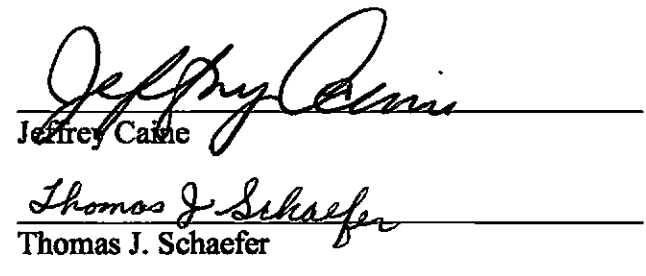 Jeffrey Caine
Jeffrey Caine
Thomas J Schaefer
Thomas J. Schaefer